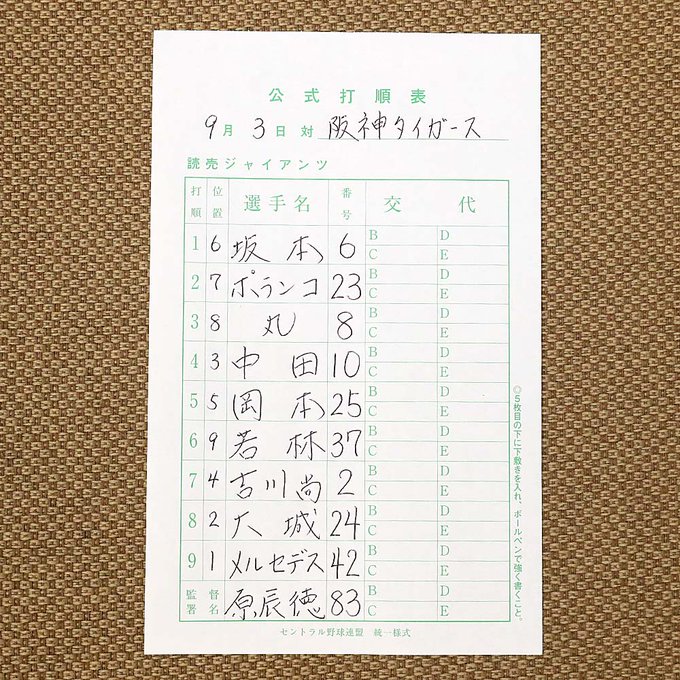 公式打順表
9月3日 対 阪神タイガース
読売ジャイアンツ
打順 位置 選手名 番号 交代
1 6 坂本 6 B D C E
2 7 ポランコ 23 B D C E
3 8 丸 8 B D C E
4 3 中田 10 B D C E
5 5 岡本 25 B D C E
6 9 若林 37 B D C E
7 4 吉川尚 2 B D C E
8 2 大城 24 B D C E
9 1 メルセデス 42 B D C E
監督署名 原辰徳 83 B D C E
セントラル野球連盟 統一様式
◎5枚目の下に下敷きを入れ、ボールペンで強く書くこと。